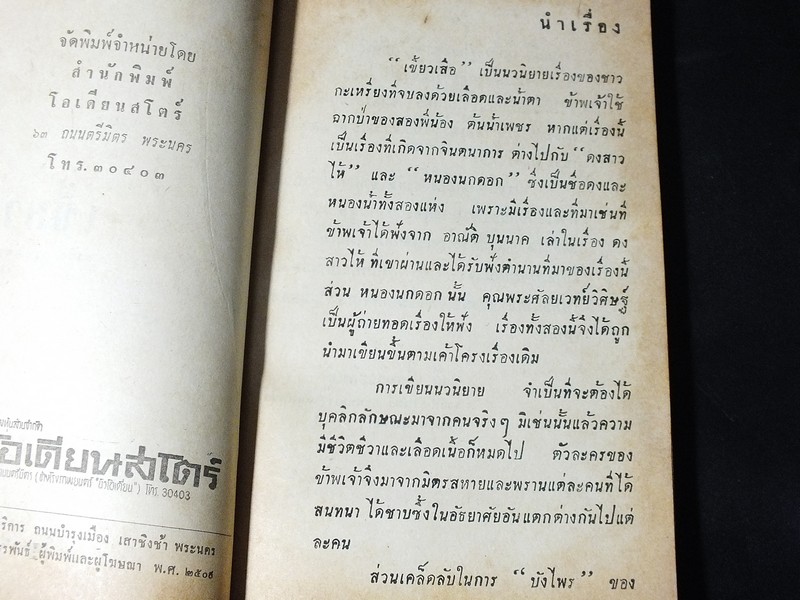 จัดพิมพ์จำหน่ายโดย
สำนักพิมพ์
โอเดียนสโตร์
๖๓ ถนนตรีมิตร พระนคร
โทร. ๓๐๔๐๓
โอเดียนสโตร์
โทร. 30403
ถนนบำรุงเมือง เสาชิงช้า พระนคร
ผู้พิมพ์และผู้โฆษณา พ.ศ.
นำเรื่อง
“เขี้ยวเสือ” เป็นนวนิยายเรื่องของชาว
กะเหรี่ยงที่จบลงด้วยเลือดและน้ำตา ข้าพเจ้าใช้
ฉากป่าของสองพี่น้อง ต้นน้ำเพชร หากแต่เรื่องนี้
เป็นเรื่องที่เกิดจากจินตนาการ ต่างไปกับ “ดงสาว
ไห้” และ “หนองนกดอก” ซึ่งเป็นชื่อดงและ
หนองน้ำทั้งสองแห่ง เพราะมีเรื่องและที่มาเช่นที่
ข้าพเจ้าได้ฟังจาก อาณัติ บุนนาค เล่าในเรื่อง ดง
สาวไห้ ที่เขาผ่านและได้รับฟังตำนานที่มาของเรื่องนี้
ส่วน หนองนกดอก นั้น คุณพระศัลยเวทย์วิศิษฐ์
เป็นผู้ถ่ายทอดเรื่องให้ฟัง เรื่องทั้งสองนี้จึงได้ถูก
นำมาเขียนขึ้นตามเค้าโครงเรื่องเดิม
การเขียนนวนิยาย จำเป็นที่จะต้องได้
บุคลิกลักษณะมาจากคนจริงๆ มิเช่นนั้นแล้วความ
มีชีวิตชีวาและเลือดเนื้อก็หมดไป ตัวละครของ
ข้าพเจ้าจึงมาจากมิตรสหายและพรานแต่ละคนที่ได้
สนทนา ได้ซาบซึ้งในอัธยาศัยอันแตกต่างกันไปแต่
ละคน
ส่วนเคล็ดลับในการ “บังไพร” ของ